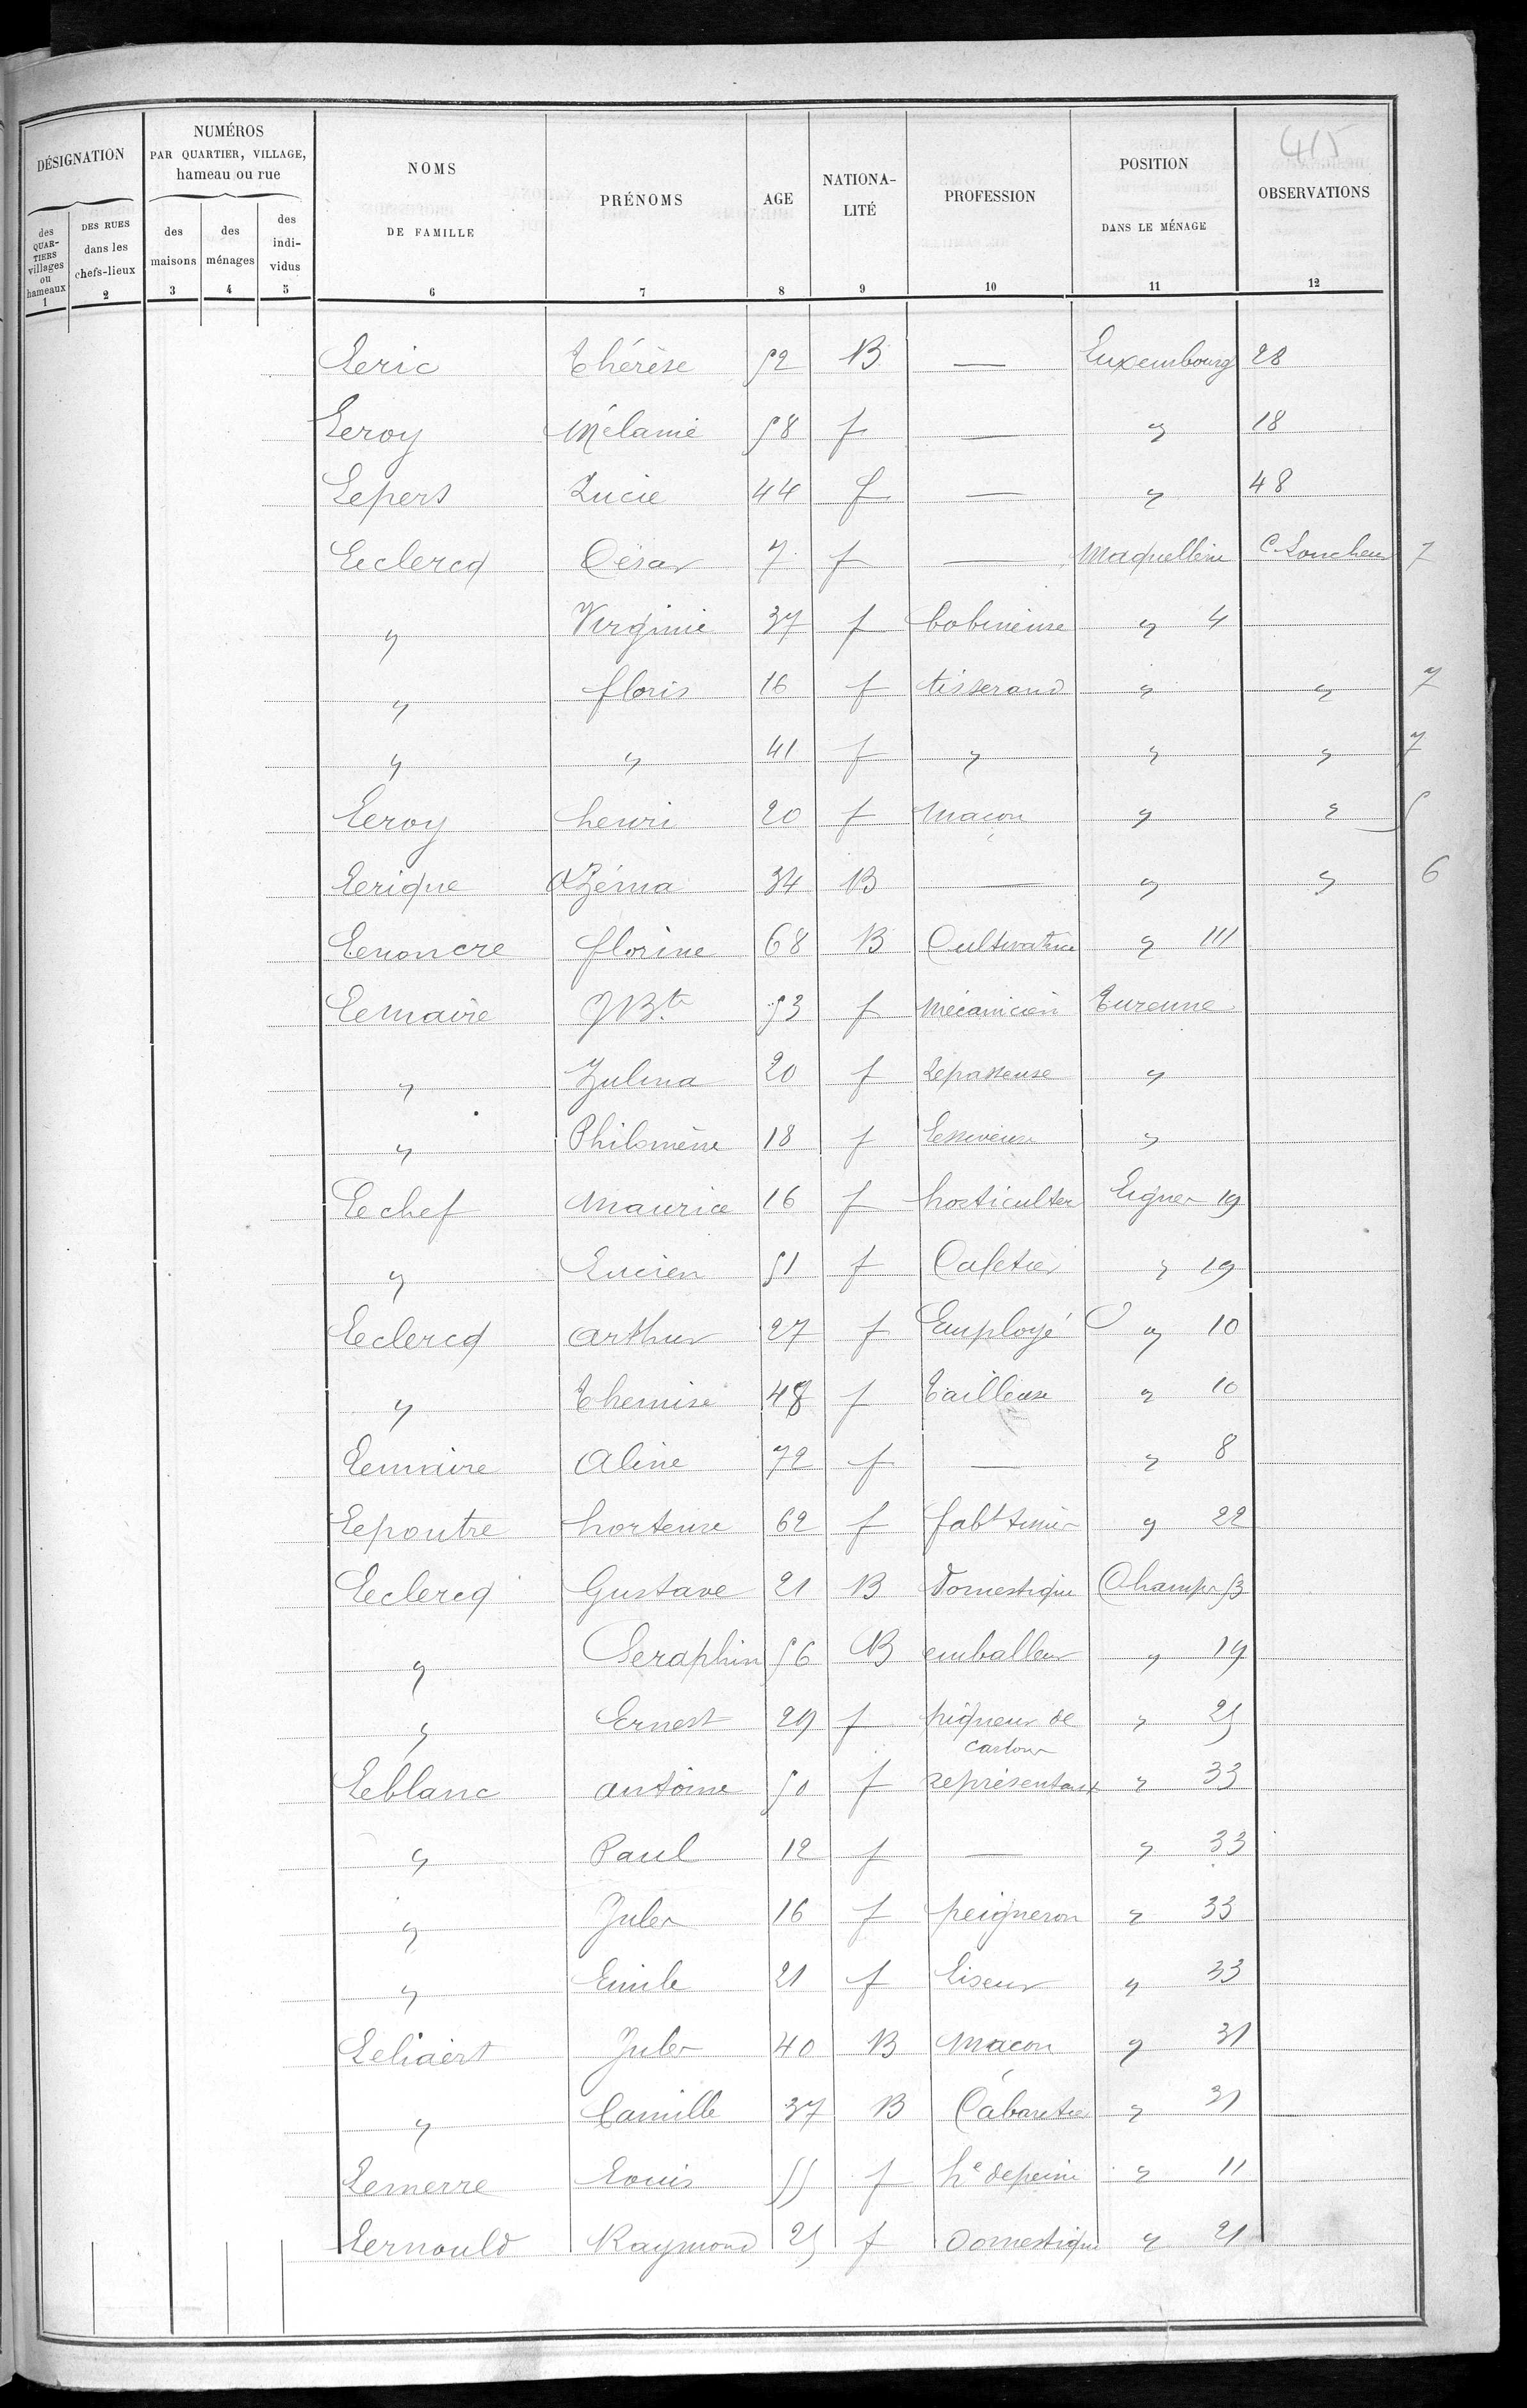 415
DÉSIGNATION
NUMÉROS
PAR QUARTIER, VILLAGE,
hameau ou rue
NOMS
DE FAMILLE
PRÉNOMS
AGE
NATIONA-
LITÉ
PROFESSION
POSITION
DANS LE MÉNAGE
OBSERVATIONS
des
QUAR-
TIERS
villages
ou
hameaux
DES RUES
dans les
chefs-lieux
des
maisons
des
ménages
des
indi-
vidus
1 2 3 4 5 6 7 8 9 10 11 12
Leric Thérèse 52 B — Luxembourg 28
Leroy Mélanie 58 f — " 18
Lepers Lucie 44 f — " 48
Leclercq César 7 f — Maquellerie C. Loucheur 7
" Virginie 37 f bobineuse " 4
" floris 16 f tisserand " " 7
" " 41 f " " " 7
Leroy henri 20 f Maçon " " 5
Lerique Azéma 34 B — " " 6
Lenoncre florine 68 B Cultivatrice " 111
Lemaire JBte 53 f Mécanicien Turenne
" Zulma 20 f Repasseuse "
" Philomène 18 f Lessiveuse "
Lechef Maurice 16 f horticulteur Ligner 19
" Lucien 51 f Cafetier " 19
Leclercq Arthur 27 f Employé " 10
" Themise 48 f Tailleuse " 10
Lemaire Aline 72 f — " 8
Lepoutre hortense 62 f fabt tissus " 22
Leclercq Gustave 21 B Domestique Champs 53
" Seraphin 56 B emballeur " 19
" Ernest 29 f piqueur de " 25
cartons
Leblanc Antoine 50 f représentant " 33
" Paul 12 f — " 33
" Jules 16 f peigneron " 33
" Emile 21 f Liseur " 33
Leliaert Jules 40 B Maçon " 31
" Camille 37 B Cabaretier " 31
Lemerre Louis 55 f he de peine " 11
Lernould Raymond 25 f Domestique " 21